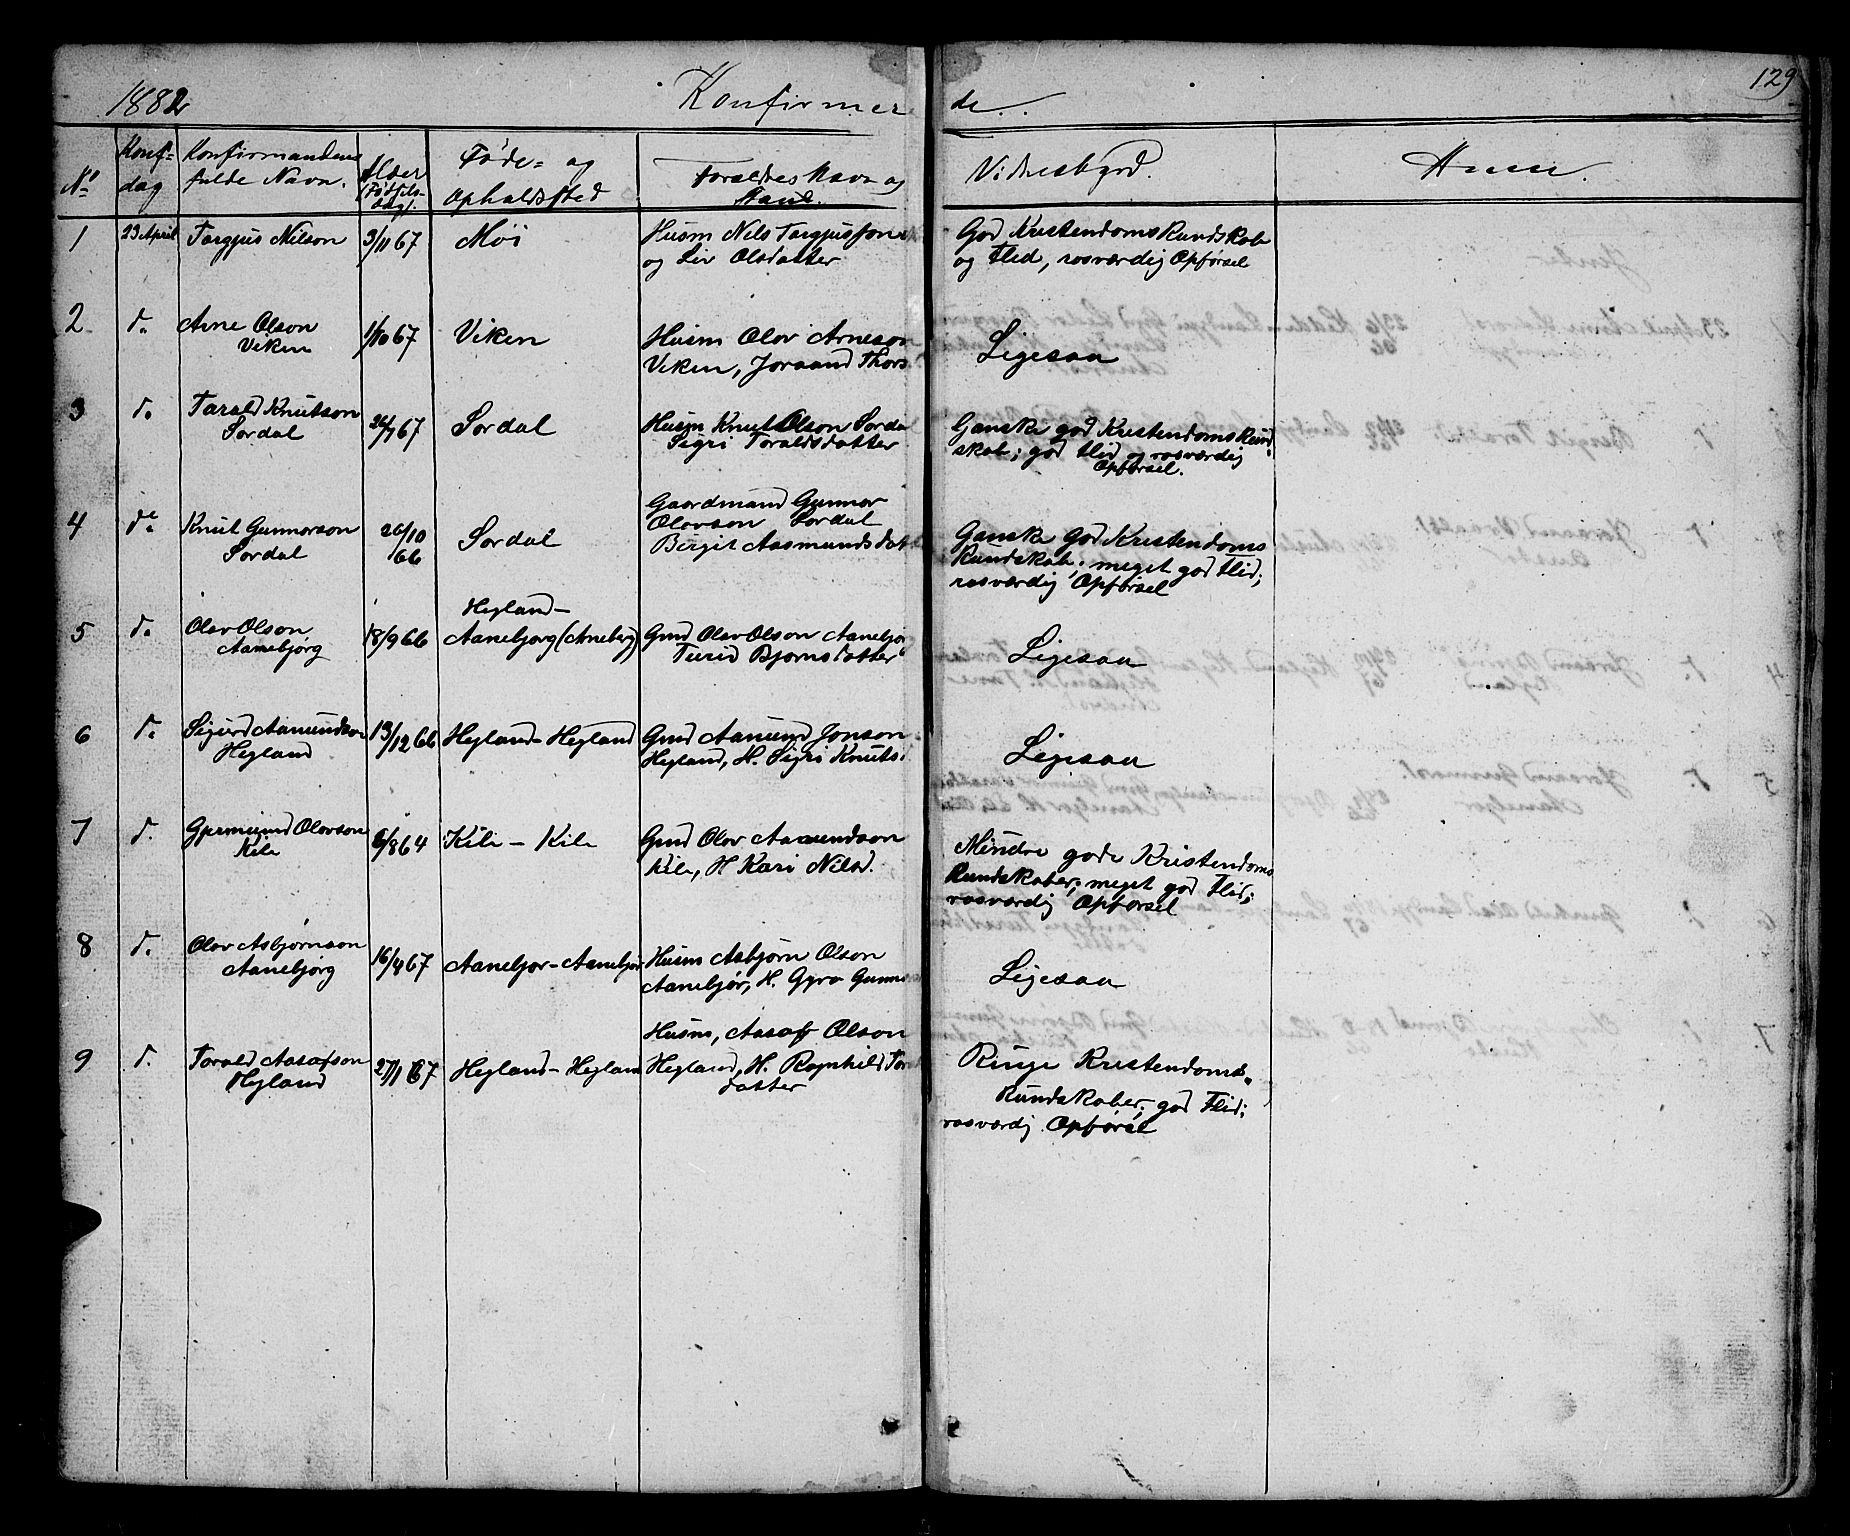 1882 Konfirmerde. 129
No Konf= dag Konfirmandens fulde Navn. Alder (Fødsels- dag). Føde= og Opholdssted Forældres Navn og Stand. Vidnesbyrd. Anm.
1 23 April Targjus Nilson 3/11 67 Møi Husm Nils Targjusson
og Liv Olsdatter
God Kristendoms Kundskab
og Flid, rosværdig Opførsel
2 d. Arne Olson
Viken
1/10 67 Viken Husm Olov Arneson
Viken, Joraand Thors
Ligesaa
3 d. Tarald Knutson
Sordal
26/7 67 Sordal Husm Knut Olson Sordal
Sigri Toraldsdatter
Ganske god Kristendoms Kund
skab; god Flid og rosværdig
Opførsel.
4 d. Knut Gunnorson
Sordal
26/10
66
Sordal Gaardmand Gunnor
Olovson Sordal
Birgit Aasmundsdat
Ganske God Kristendoms
Kundskab; meget god Flid;
rosværdig Opførsel
5 d. Olov Olson
Aanebjørg
18/9 66 Heyland-
Aanebjorg (Aneberg)
Gmd Olov Olson Aanebjo
Turid Bjornsdatter
Ligesaa
6 d. Sigurd Aamundson
Heyland
13/12 66 Heyland- Heyland Gmd Aamund Jonson
Heyland, H. Sigri Knuts.
Ligesaa
7 d. Gjermund Olovson
Kile
6/8 64 Kile - Kile Gmd Olov Aamundson
Kile, H Kari Nilsd.
Mindre gode Kristendoms
Kundskaber; meget god Flid;
rosværdig Opførsel
8 d. Olov Asbjørnson
Aanebjørg
16/4 67 Aanebjor- Aanebjør Husm Asbjørn Olson
Aanebjør, H. Gyro Gunno
Ligesaa
9 d. Torald Aasofson
Heyland
27/1 67 Heyland- Heyland Husm, Aasof Olson
Heyland, H. Ragnhild Tor
datter
Ringe Kristendoms
Kundskaber; god Flid;
rosværdig Opførsel